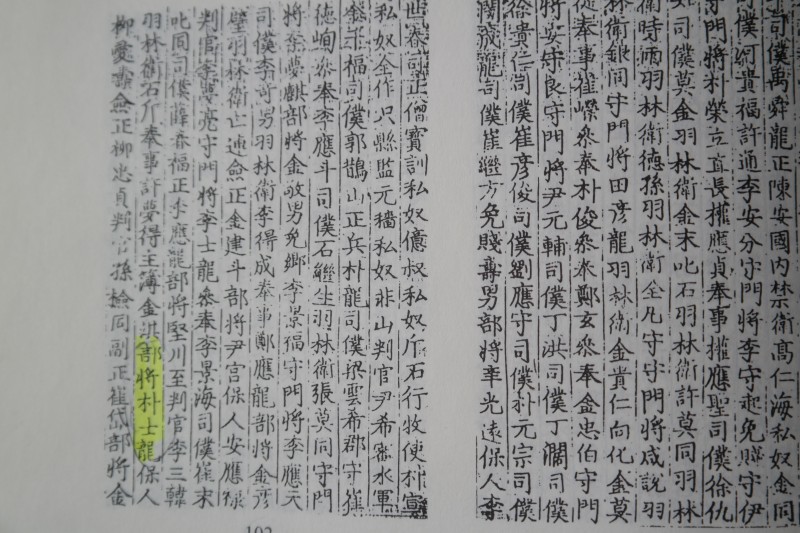 司僕禹舜龍正陳安國內禁衛高仁海私奴金同
司僕貴福許通李安分守門將李守起免賤守伊
守門將朴榮立直長權應貞奉事權應聖司僕徐仇
司僕莫金羽林衛金末叱石羽林衛許莫同羽林
衛時羽林衛德孫羽林衛守守門將咸說羽
林衛銀同守門將田彦龍羽林衛金貴仁向化金莫
從奉事崔嶸參奉朴俊參奉鄭玄參奉金忠伯守門
將安守良守門將尹元輔司僕丁洪司僕丁濶司僕
徐貴仁司僕崔彦俊司僕劉應守司僕朴元宗司僕
龍司僕崔繼方免賤壽男部將辛光遠保人李
司正僧寶訓私奴億叔私奴斤石行牧使朴
私奴金作只縣監元穡私奴非山判官尹希水軍
福司僕郭鵲山正兵朴龍司僕梁雲希郡守崔
德峋參奉李應斗司僕石繼生羽林衛張莫同守門
將蔡夢麒部將金敬男免鄉李景福守門將李應天
司僕李奇男羽林衛李得成奉事鄭應龍部將金彦
璧羽林衛亡連僉正金建斗部將尹宮保人安應祿
判官李夢亮守門將李士龍參奉李景海司僕崔末
叱同司僕薛春福正李應龍部將堅川至判官李三韓
羽林衛石斤奉事許夢得主簿金淇部將朴士龍保人
柳愛僉正柳忠貞判官孫檢同副正崔岱部將金
102